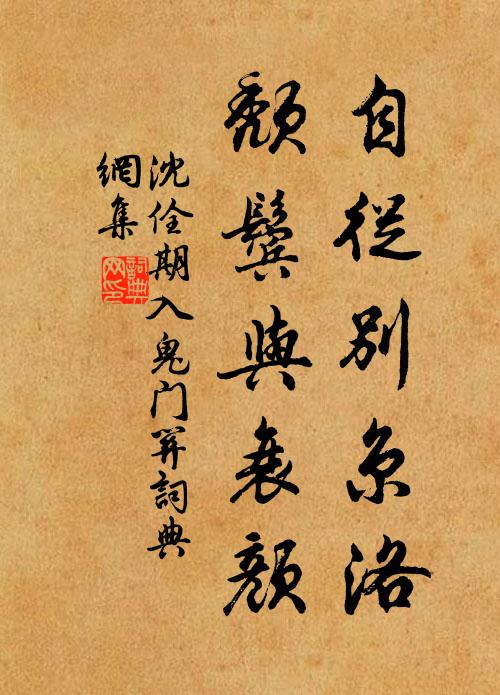 自從別京洛
頹鬢與衰顏
沈佺期入鬼門關詞典
網集
詞典
网印